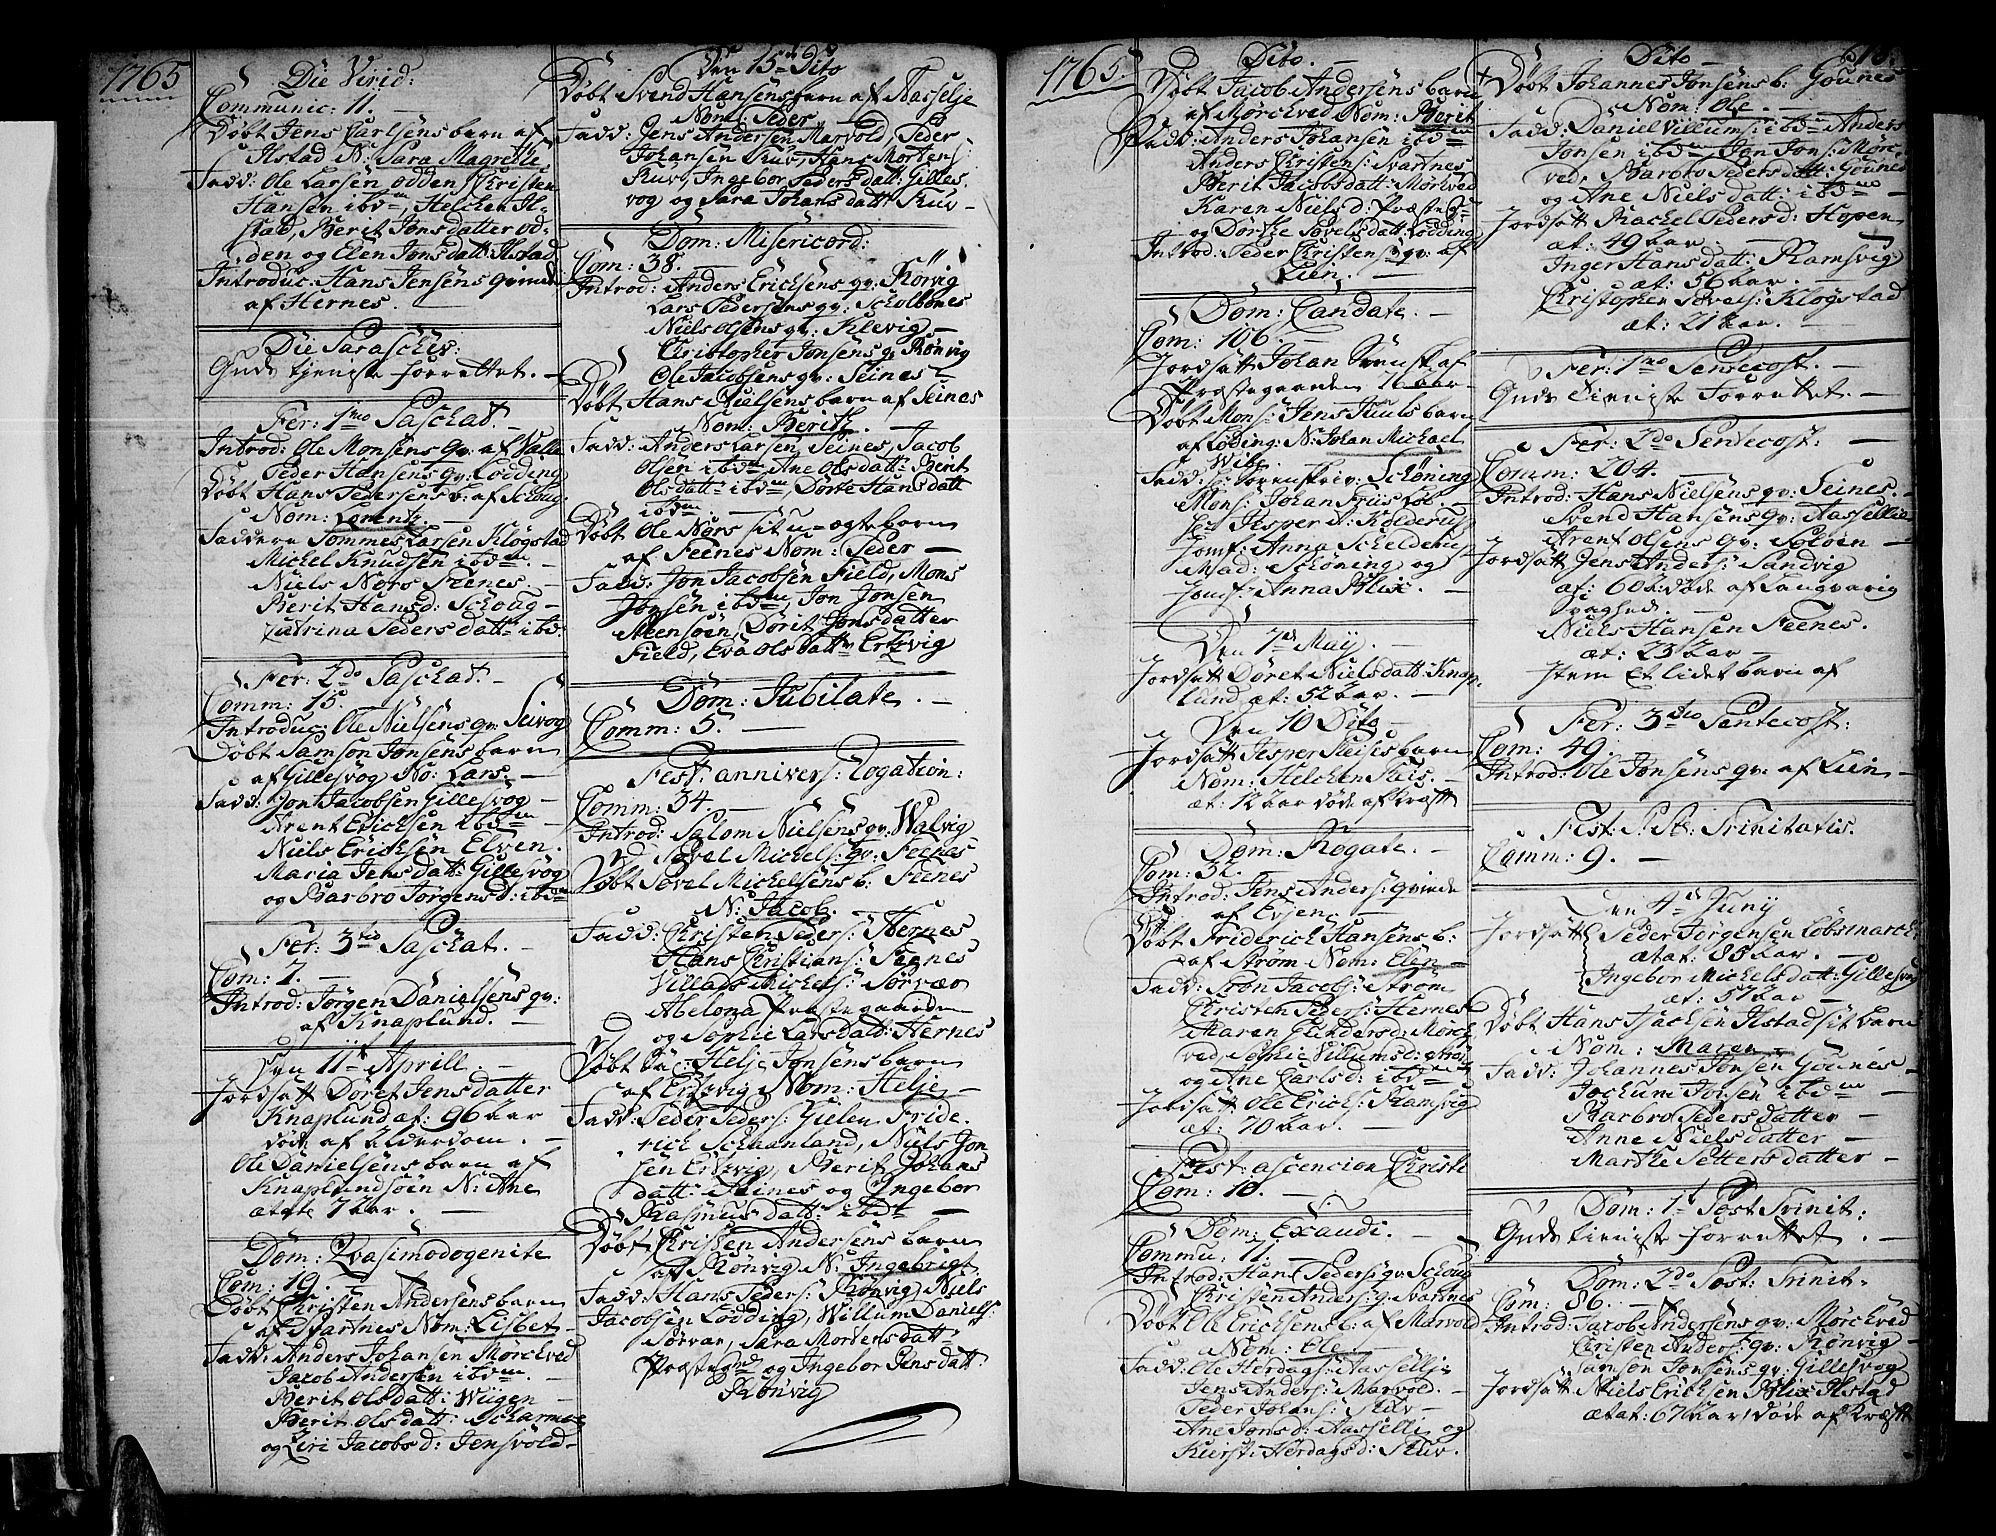 1765
Die Virid:
Communic: 11. —
Døbt Jens Carlsens barn af
Ilstad N: Sara Magrethe
Fadd: Ole Larsen Odden, Christen
Hansen ibdm, Helchen Il-
stad, Berit Jonsdatter od-
den og Elen Jonsdatt: Ilstad
Introduc: Hans Jensens qvinde
af Hernes.
Die Paraschev:
Guds tjeniste forrettet. —
Fer: 1mo Paschat. —
Introd: Ole Monsens qv: af Valle
Peder Hansens qv: Lødding
Døbt Hans Pedersens b: af Schoug:
Nom: Lorentz. —
Faddere Tommes Larsen Kløgstad
Michel Knudsen ibdm. —
Niels Nors Feenes. —
Berit Hansd: Schoug —
Catrina Peders datt: ibd:
Fer: 2do Paschat. —
Comm: 15. —
Introduc: Ole Nielsens qv: Seivog
Døbt Samson Jonsens barn
af Gillesvog No: Lars. —
Fadd: Jon Jacobsen Gillesvog —
Arent Erichsen ibdm —
Niels Erichsen Elven. —
Maria Jensdatt: Gillesvog
og Barbro Jørgensd: ibdm
Fer: 3tio Paschat. —
Com: 7. —
Introd: Jørgen Danielsens qv:
af Knaplund. —
Den 11te Aprill. —
Jordsatt Døret Jensdatter
Knaplund æt: 96 aar
døde af Alderdom. —
Ole Danielsens barn af
Knaplundsøen N: Ane
ætate 7 aar. —
Dom: Qvasimodogenite
Com: 19. —
Døbt Christen Andersens barn
af Svartnes Nom: Lisbet —
Fadd: Anders Johansen Mørchved
Jacob Andersen ibdm. —
Berit Olsdatt: Wiigen —
Berit Olsdatt: Scharmoe
og Siri Jacobsd: Jensvold —
Den 15de Dito
Døbt Svend Hansens barn af Aasselje
Nom: Peder
Fadd: Jens Andersen Marvold, Peder
Johansen Skuv, Hans Mortens:
Kuv, Ingebor Pedersdatt: Gilles
vog og Sara Johansdatt: Kuv —
Dom: Misericord:
Com: 38. —
Introd: Anders Erichsens qv: Rørvig
Lars Pedersens qv: Scholbones
Niels Olsens qv: Klevig —
Christopher Jonsens q: Rønvig
Ole Jacobsens qv: Seines —
Døbt Hans Nielsens barn af Seines
Nom: Berith. —
Fadd: Anders Larsen Seines, Jacob
Olsen ibdm Ane Olsdatt: Berit
Olsdatt: ibdm, Dorte Hansdatt
ibdm. —
Døbt Ole Nors sit u-ægte barn
af Feenes Nom: Peder —
Fadd: Jon Jacobsen Field, Mons
Jonsen ibdm, Jon Jonsen
Steensøen, Dorit Jonsdatter
Field, Eva Olsdatt: Ertzvig
Dom: Jubilate. —
Comm: 5. —
Fest: annivers: Rogation:
Comm: 34. —
Introd: Salom Nielsens qv: Walvig
Povel Michels: qv: Feenes
Døbt Povel Michelsens b: Feenes
N: Jacob. —
Fadd: Christen Peders: Hernes
Hans Christians: Feenes
Villads Michels: Sørvær
Abelona Præstegaarden
og Sophie Larsdatt: Hernes
Døbt Sa: Helje Jonsens barn
af Ertzvig Nom: Helje —
Fadd: Peder Peders: Gielen Fride
rich Schaanland, Niels Jon
sen Ertzvig, Berit Johans
datt: Steines og Ingebor
Rasmus datt: ibdm —
Døbt Christen Andersens barn
af Rønvig N: Ingebrigt
Fadd: Hans Peders: Rønvig Niels
Jacobsen Lødding, Willum Daniels:
Sørvær, Sara Mortensdatt:
Præstegrd og Ingebor Jensdatt:
Rønvig
1765.
Dito. —
Døbt Jacob Andersens barn
af Mørchved Nom: Berit
Fadd: Anders Johansen ibdm
Anders Christens: Svartnes
Berit Jacobsdatt: Mørkved
Karen Nielsd: Præsteg:
og Dorthe Povelsdatt: Lødding
Introd: Peder Christens: qv: af
Lien. —
Dom: Candate. —
Com: 106. —
Jordsatt Johan Svensk af
Præstegaarden 76 aar —
Døbt Mons: Jens Juuls barn
af Løding: N: Johan Michael
Wibe.
Fadd: Hr Sorenskriv: Schøning
Mons: Johan Friis Løb —
Jesper A: Kolderup
Jomf: Anna Schelderup
Mad: Schøning og
Jomf: Anna Blix. —
Den 7de May. —
Jordsatt Døret Nielsdatt: Knap-
lund æt: 52 aar. —
Den 10 Dito —
Jordsatt Jesper Fleises barn
Nom: Helchen Fleis. —
æt: 12 aar døde af bræstt
Dom: Rogate. —
Com: 32. —
Introd: Jens Anders: qvinde
af Evjen. —
Døbt Friderich Hansens b:
af Strøm Nom: Elen —
Fadd: Tron Jacobs: Strøm
Christen Peders: Hernes
Maren Enersd: Mørch
ved, Sophie Villumsd: Strøm
og Ane Carlsd: ibdm
Jordsatt Ole Erichs: Ramsvig
æt: 70 aar. —
Fest: ascencion Christi
Com: 10. —
Dom: Exaudi. —
Commu: 11. —
Introd: Hans Peders: qv: Schoug
Christen Anders: q: Svartnes
Døbt Ole Erichsens b: af Marvold
Nom: Ole. —
Fadd: Ole Herdags: Aasselje
Jens Anders: Marvold. —
Peder Johans: Skuv —
Ane Jonsd: Aasselli og
Kierst: Herdagsd: Skuv.
Dito —
Døbt Johannes Jonsens b: Gounes
Nom: Ole. —
Fadd: Daniel Villums: ibdm Anders
Jonsen ibdm Jon Jons: Mørch-
ved, Barbro Pedersdatt: Gounes
og Ane Nielsdatt: ibdm —
Jordsatt Rachel Pedersd: Hopen
æt: 49 aar —
Inger Hansdatt: Ramsvig:
æt: 56 aar. —
Christopher Povels: Kløgstad
æt: 21 aar. —
Fer: 1mo Pentecost. —
Guds Tieniste Forrettet. —
Fer: 2do Pentecost: —
Comm: 204. —
Introd: Hans Nielsens qv: Seines. —
Svend Hansens qv: Aassellie
Arent Olsens qv: Soløen —
Jordsatt Jens Anders: Sandvig
æt: 60 a: døde af Langvarig
svaghed. —
Niels Hansen Feenes.
æt: 23 aar —
Item Et lidet barn af
Fer: 3tio Pentecost:
Com: 49. —
Introd: Ole Jonsens qv: af Lien —
Fest: S: St: Trinitatis.
Comm: 9. —
Den 4de Juny
Jordsatt Peder Jørgensen Løbsmarch:
ætat: 85 aar. —
Ingebor Michelsdatt: Gillesvog
æt: 57 aar —
Døbt Hans Isachsen Ilstads sit barn
Nom: Maren —
Fadd: Johannes Jonsen Gounes —
Jochum Jonsen ibdm —
Barbro Pedersdatter —
Anne Nielsdatter —
Marthe Pettersdatter —
Dom: 1te Post Trinit:
Guds tieniste forrettet. —
Dom: 2do Post: Trinit.
Com: 86. —
Introd: Jacob Andersens qv: Mørchved
Christen Anders: qv: Rønvig —
Samson Jonsens qv: Gillesvog
Jordsatt Niels Erichsen Blix Ilstad
ætat: 67 aar, døde af bræstt